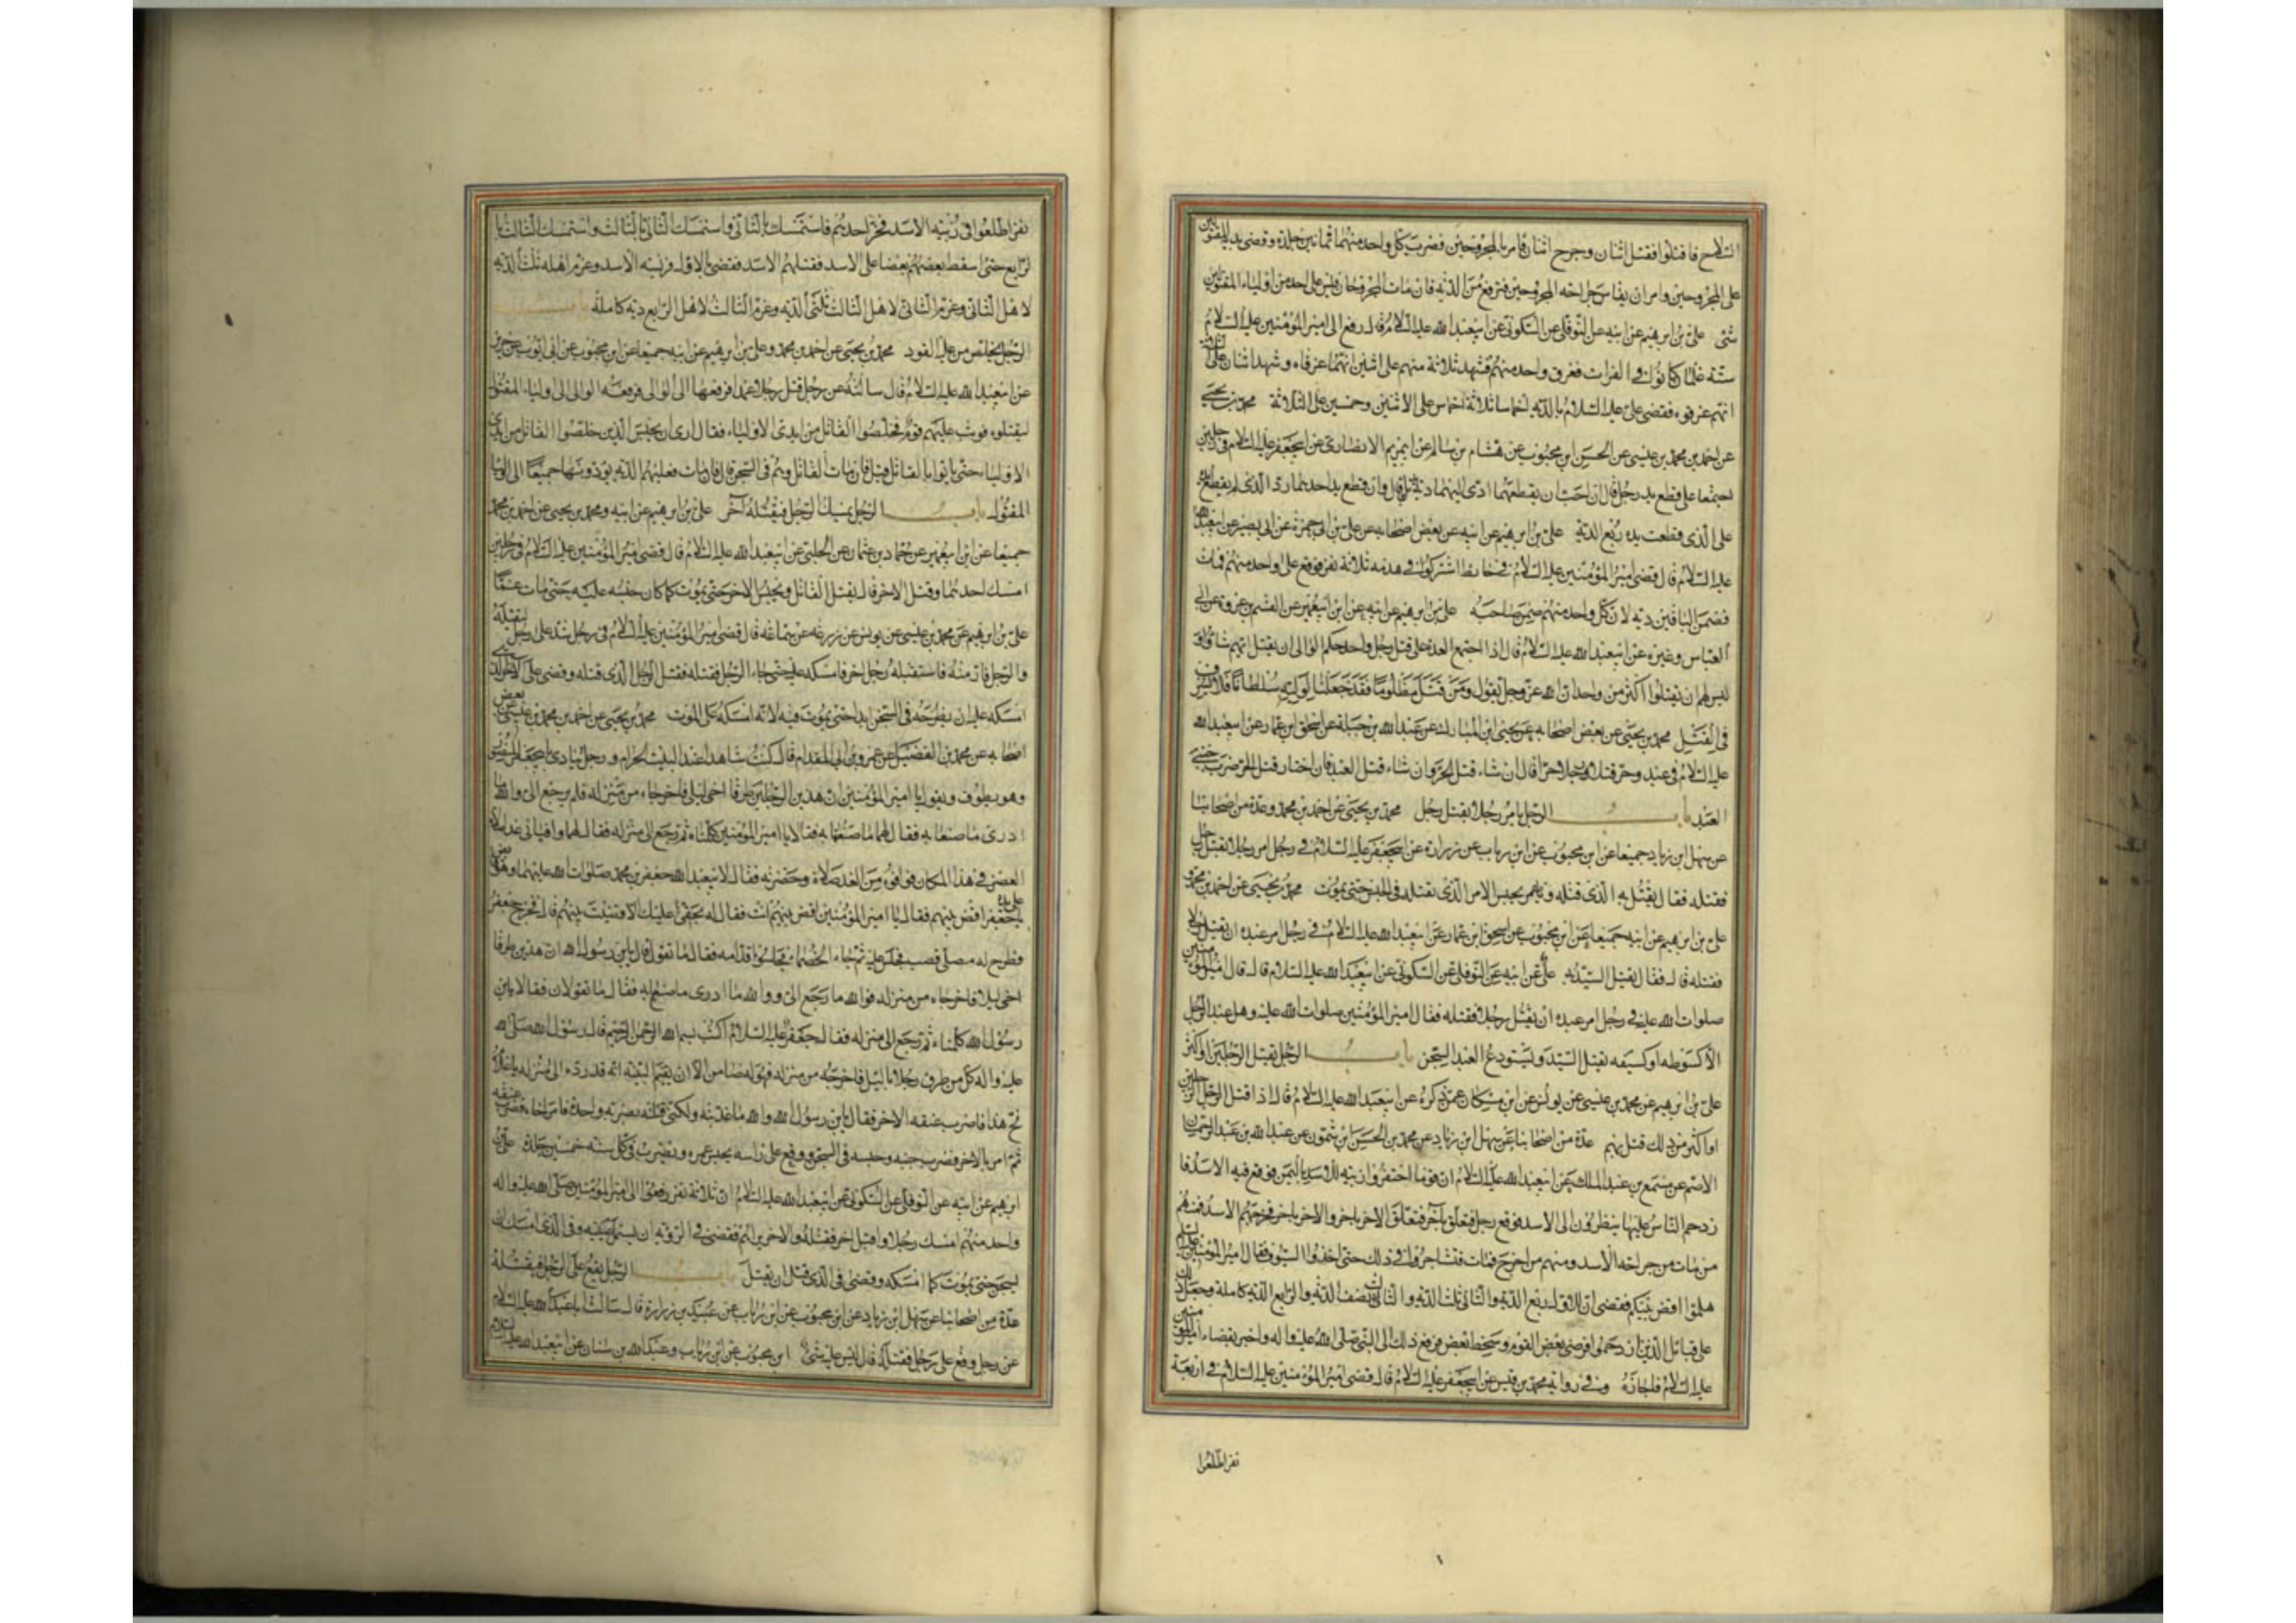 السلاح فاقتتلوا فقتل اثنان وجرح اثنان فامر بالمجروحين فضرب كل واحد منهما ثمانين جلدة وقضى بدية المقتولين
على المجروحين وامر ان يقاس جراحة المجروحين فترفع من الدية فان مات المجروحان فليس على احد من اولياء المقتولين
شئ علي بن ابرهيم عن ابيه عن النوفلي عن السكوني عن ابيعبد الله عليه السلام قال رفع الى امير المؤمنين عليه السلام
ستة غلمان كانوا في الفرات فغرق واحد منهم فشهد ثلاثة منهم على اثنين انهما غرقاه وشهد اثنان على الثلاثة
انهم غرقوه فقضى علي عليه السلام بالدية اخماسا ثلاثة اخماس على الاثنين وخمسين على الثلاثة محمد بن يحيى
عن احمد بن محمد بن عيسى عن الحسن ابن محبوب عن هشام بن سالم عن ابيمريم الانصاري عن ابيجعفر عليه السلام في رجلين
اجتمعا على قطع يد رجل قال ان احب ان يقطعهما ادى اليهما دية يد قال وان قطع يد احدهما رد الذي لم يقطع يده
على الذي قطعت يده ربع الدية علي بن ابرهيم عن ابيه عن بعض اصحابه عن علي بن ابي حمزة عن ابي بصير عن ابيعبد الله
عليه السلام قال قضى امير المؤمنين عليه السلام في حايط اشتركوا في هدمه ثلاثة نفر فوقع على واحد منهم فمات
فضمن الباقين ديته لان كل واحد منهم ضمن صاحبه علي بن ابرهيم عن ابيه عن ابن ابيعمير عن القسم بن عروة عن ابي
العباس وغيره عن ابيعبد الله عليه السلام قال اذا اجتمع العدة على قتل رجل واحد حكم الوالي ان يقتل ايهم شاؤا و
ليس لهم ان يقتلوا اكثر من واحد ان الله عز وجل يقول ومن قتل مظلوما فقد جعلنا لوليه سلطانا فلا يسرف
في القتل محمد بن يحيى عن بعض اصحابه عن يحيى ابن المبارك عن عبد الله بن جبلة عن اسحق ابن عمار عن ابيعبد الله
عليه السلام في عبد وحر قتلا رجلا حرا قال ان شاء قتل الحر وان شاء قتل العبد فان اختار قتل الحر ضرب جنبي
العبد باب الرجل يامر رجلا بقتل رجل محمد بن يحيى عن احمد بن محمد وعدة من اصحابنا
عن سهل ابن زياد جميعا عن ابن محبوب عن ابن رياب عن زرارة عن ابيجعفر عليه السلام في رجل امر رجلا بقتل رجل
فقتله فقال يقتل به الذي قتله ويحبس الامر الذي بقتله في الحبس حتى يموت محمد بن يحيى عن احمد بن محمد و
علي بن ابرهيم عن ابيه جميعا عن ابن محبوب عن اسحق ابن عمار عن ابيعبد الله عليه السلام في رجل امر عبده ان يقتل رجلا
فقتله قال فقال يقتل السيد به علي عن ابيه عن النوفلي عن السكوني عن ابيعبد الله عليه السلام قال قال امير المؤمنين
صلوات الله عليه في رجل امر عبده ان يقتل رجلا فقتله فقال امير المؤمنين صلوات الله عليه وهل عبد الرجل
الا كسوطه او كسيفه يقتل السيد ويستودع العبد السجن باب الرجل يقتل الرجلين او اكثر
علي بن ابرهيم عن محمد بن عيسى عن يونس عن ابن مسكان عمن ذكره عن ابيعبد الله عليه السلام قال اذا قتل الرجل الرجلين
او اكثر من ذلك قتل بهم عدة من اصحابنا عن سهل ابن زياد عن محمد بن الحسن ابن شمون عن عبد الله بن عبد الرحمن
الاصم عن مسمع بن عبد الملك عن ابيعبد الله عليه السلام ان قوما احتفروا زبية للاسد باليمن فوقع فيه الاسد فا
زدحم الناس عليها ينظرون الى الاسد فوقع رجل فتعلق بآخر فتعلق الاخر باخر والاخر باخر فجرحهم الاسد فمنهم
من مات من جراحة الاسد ومنهم من اخرج فمات فتشاجروا في ذلك حتى اخذوا السيوف فقال امير المؤمنين عليه السلام
هلموا اقض بينكم فقضى ان للاول ربع الدية والثاني ثلث الدية والثالث نصف الدية والرابع الدية كاملة وجعل ذلك
على قبائل الذين ازدحموا فرضي بعض القوم وسخط بعض فرفع ذلك الى النبي صلى الله عليه واله واخبر بقضاء امير المؤمنين
عليه السلام فاجازه وفي رواية محمد بن قيس عن ابيجعفر عليه السلام قال قضى امير المؤمنين عليه السلام في اربعة
نفر اطلعوا
نفر اطلعوا في زبية الاسد فخر احدهم فاستمسك بالثاني واستمسك الثاني بالثالث واستمسك الثالث با
لرابع حتى اسقط بعضهم بعضا على الاسد فقتلهم الاسد فقضى بالاول فريسة الاسد وغرم اهله ثلث الدية
لاهل الثاني وغرم الثاني لاهل الثالث ثلثي الدية وغرم الثالث لاهل الرابع دية كاملة باب
الرجل يخلص من عليه القود محمد بن يحيى عن احمد بن محمد وعلي بن ابرهيم عن ابيه جميعا عن ابن محبوب عن ابي ايوب عن حريز
عن ابيعبد الله عليه السلام قال سالته عن رجل قتل رجلا عمدا فرفع الى الوالي فدفعه الوالي الى اولياء المقتول
ليقتلوه فوثب عليهم قوم فخلصوا القاتل من ايدي الاولياء فقال ارى ان يحبس الذين خلصوا القاتل من ايدي
الاولياء حتى ياتوا بالقاتل قيل فان مات القاتل وهم في السجن قال فان مات فعليهم الدية يؤدونها جميعا الى اولياء
المقتول باب الرجل يمسك الرجل فيقتله آخر علي بن ابرهيم عن ابيه ومحمد بن يحيى عن احمد بن محمد
جميعا عن ابن ابيعمير عن حماد بن عثمان عن الحلبي عن ابيعبد الله عليه السلام قال قضى امير المؤمنين عليه السلام في رجلين
امسك احدهما وقتل الاخر قال يقتل القاتل ويحبس الاخر حتى يموت كما كان حبسه عليه حتى مات غما
علي بن ابرهيم عن محمد بن عيسى عن يونس عن زرعة عن سماعة قال قضى امير المؤمنين عليه السلام في رجل شد على رجل ليقتله
والرجل فار منه فاستقبله رجل اخر فامسكه عليه حتى جاء الرجل فقتله فقتل الرجل الذي قتله وقضى على الاخر الذي
امسكه عليه ان يطرحه في السجن ابدا حتى يموت فيه لانه امسكه على الموت محمد بن يحيى عن احمد بن محمد بن عيسى عن بعض
اصحابه عن محمد بن الفضيل عن عمرو بن ابي المقدام قال كنت شاهدا عند البيت الحرام ورجل ينادي بابيجعفر المنصور
وهو يطوف ويقول يا امير المؤمنين ان هذين الرجلين طرقا اخي ليلا فاخرجاه من منزله فلم يرجع الي والله ما
ادري ما صنعا به فقال لهما ما صنعتما به فقالا يا امير المؤمنين كلمناه ثم رجع الى منزله فقال لهما وافياني غدا صلاة
العصر في هذا المكان فوافوه من الغد صلاة وحضرته فقال لابيعبد الله جعفر بن محمد صلوات الله عليهما وهو قابض على يده
يا جعفر اقض بينهم فقال يا امير المؤمنين اقض بينهم انت فقال له بحقي عليك الا قضيت بينهم قال فخرج جعفر
فطرح له مصلى قصب فجلس عليه ثم جاء الخصماء فجلسوا قدامه فقال ما تقول قال يابن رسول الله ان هذين طرقا
اخي ليلا فاخرجاه من منزله فوالله ما رجع الي ووالله ما ادري ما صنعا به فقال ما تقولان فقالا يابن
رسول الله كلمناه ثم رجع الى منزله فقال جعفر عليه السلام اكتب بسم الله الرحمن الرحيم قال رسول الله صلى الله
عليه واله كل من طرق رجلا بالليل فاخرجه من منزله فهو له ضامن الا ان يقيم البينة انه قد رده الى منزله يا غلام
نح هذا فاضرب عنقه الاخر فقال يابن رسول الله والله ما عذبته ولكني قتلته بضربة واحدة فامر اخاه فضرب عنقه
ثم امر بالاخر فضرب جنبيه وحبسه في السجن ووقع على راسه يحبس عمره ويضرب في كل سنة خمسين جلدة علي بن
ابرهيم عن ابيه عن النوفلي عن السكوني عن ابيعبد الله عليه السلام ان ثلاثة نفر رفعوا الى امير المؤمنين صلى الله عليه واله
واحد منهم امسك رجلا واقبل اخر فقتله والاخر يراهم فقضى في الرؤية ان يسمل عينيه وفي الذي امسك ان
يسجن حتى يموت كما امسكه وقضى في الذي قتل ان يقتل باب الرجل يقع على الرجل فيقتله
عدة من اصحابنا عن سهل ابن زياد عن ابن محبوب عن ابن رياب عن عبيد بن زرارة قال سالت ابا عبد الله عليه السلام
عن رجل وقع على رجل فقتله قال ليس عليه شئ ابن محبوب عن ابن رياب وعبد الله بن سنان عن ابيعبد الله عليه السلام